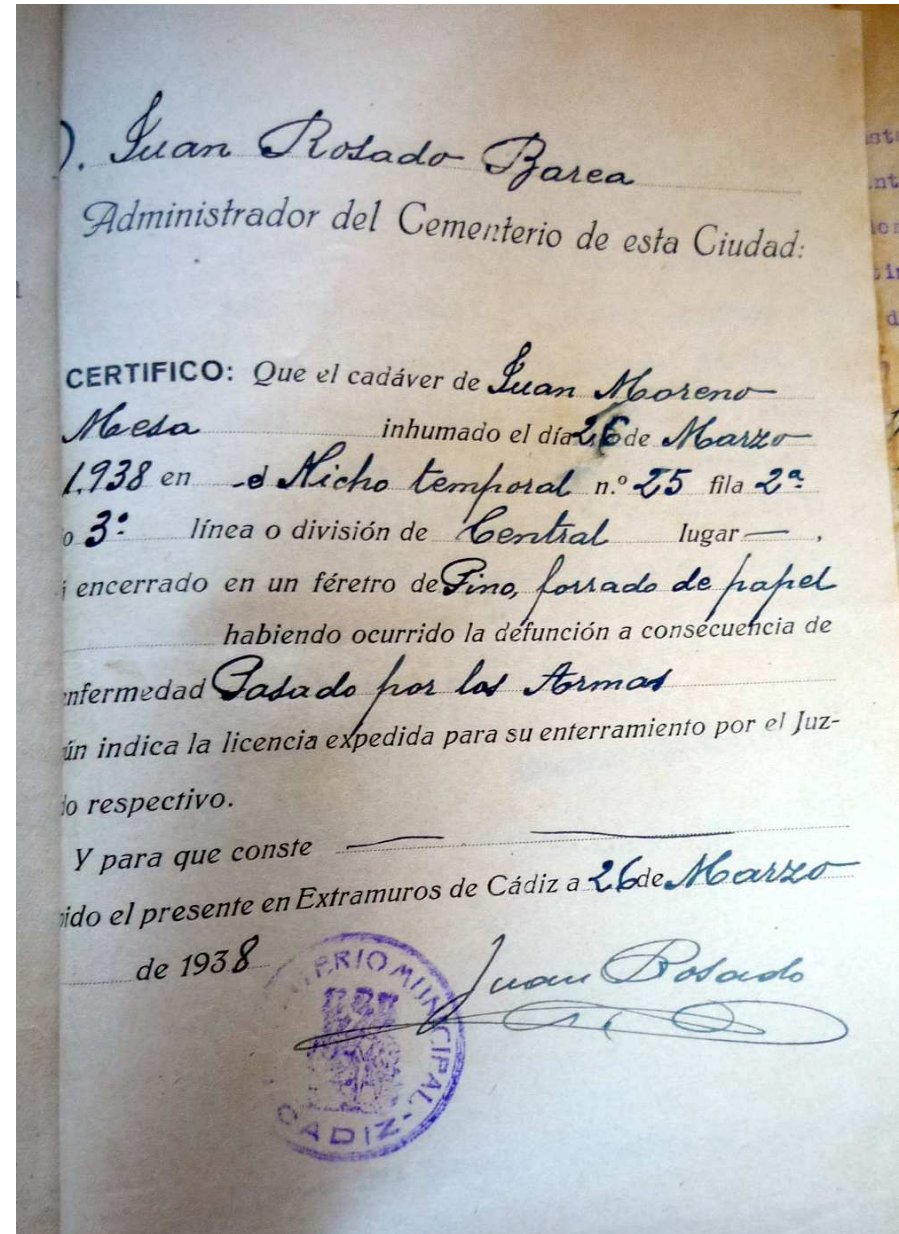 ). Juan Rosado Barea
Administrador del Cementerio de esta Ciudad:
CERTIFICO: Que el cadáver de Juan Moreno
Mesa inhumado el día 26 de Marzo
1.938 en el Nicho temporal n.º 25 fila 2ª
o 3º línea o división de Central lugar — ,
encerrado en un féretro de Pino, forrado de papel
habiendo ocurrido la defunción a consecuencia de
nfermedad Pasado por las Armas
ún indica la licencia expedida para su enterramiento por el Juz-
do respectivo.
Y para que conste
ido el presente en Extramuros de Cádiz a 26 de Marzo
de 1938
Juan Rosado
ERIO MUNICIPAL
CADIZ